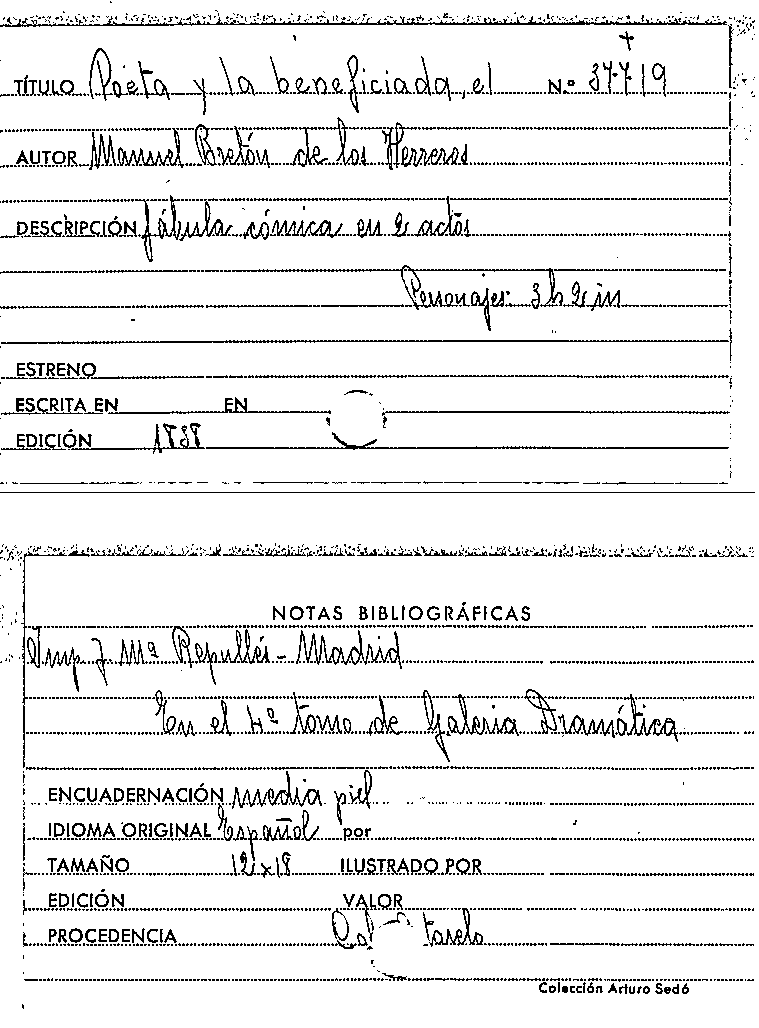 TÍTULO Poeta y la beneficiada, el N.º 37719
AUTOR Manuel Bretón de los Herreros
DESCRIPCIÓN fábula cómica en 2 actos
Personajes: 3 h 2 m
ESTRENO
ESCRITA EN EN
EDICIÓN 1838
NOTAS BIBLIOGRÁFICAS
Imp J. Mª Repullés - Madrid
En el 4º tomo de Galeria Dramática
ENCUADERNACIÓN media piel
IDIOMA ORIGINAL Español por
TAMAÑO 12 x 18 ILUSTRADO POR
EDICIÓN VALOR
PROCEDENCIA
Colección Arturo Sedó